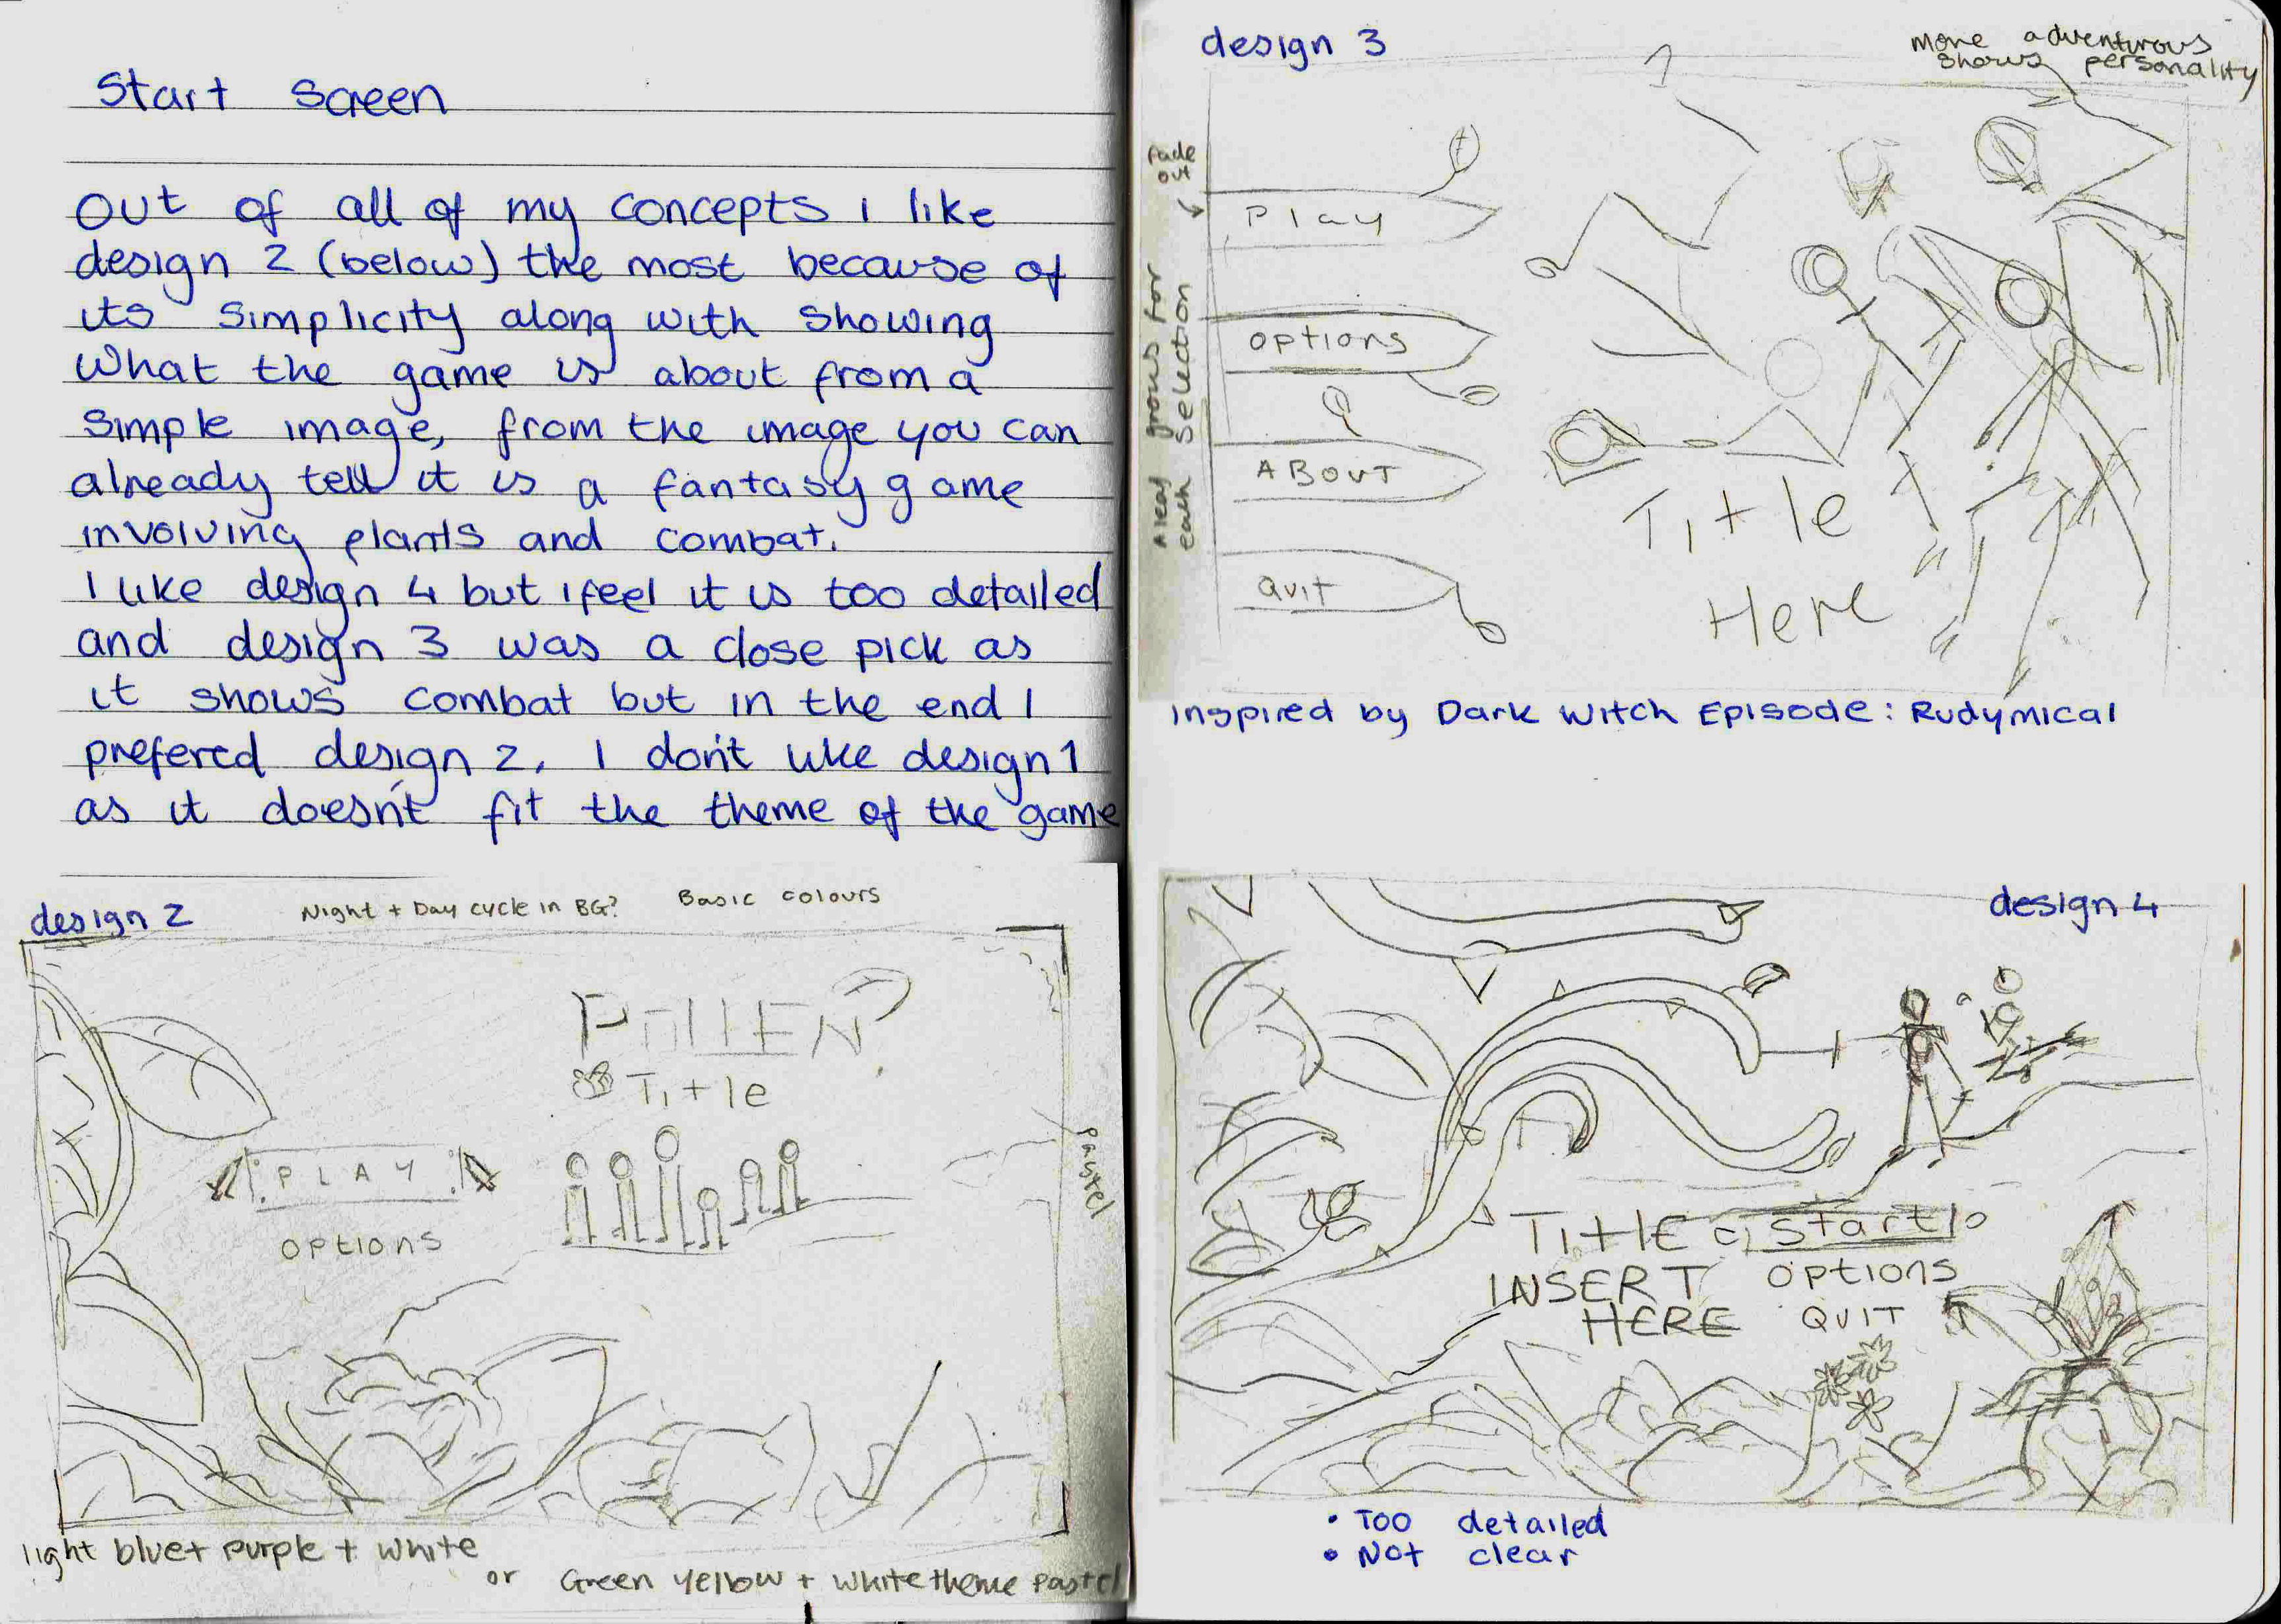 Start Screen
Out of all of my concepts i like
design 2 (below) the most because of
its simplicity along with showing
what the game is about from a
simple image, from the image you can
already tell it is a fantasy game
involving plants and combat.
I like design 4 but i feel it is too detailed
and design 3 was a close pick as
it shows combat but in the end I
prefered design 2. I don't like design 1
as it doesn't fit the theme of the game
design 2
Night + Day cycle in BG?
Basic colours
Pollen?
Title
PLAY
OPTIONS
Pastel
light blue + purple + white
or Green yellow + white theme pastel
design 3
more adventurous
shows personality
Fade
out
A leaf grows for
each selection
Play
options
ABOUT
Quit
Title
Here
Inspired by Dark Witch Episode: Rudymical
design 4
Title Start
INSERT Options
HERE QUIT
• Too detailed
• Not clear